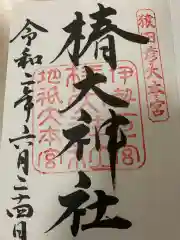 猿田彦大本宮
椿大神社
伊勢一之宮
地祇大本宮
令和二年六月二四日